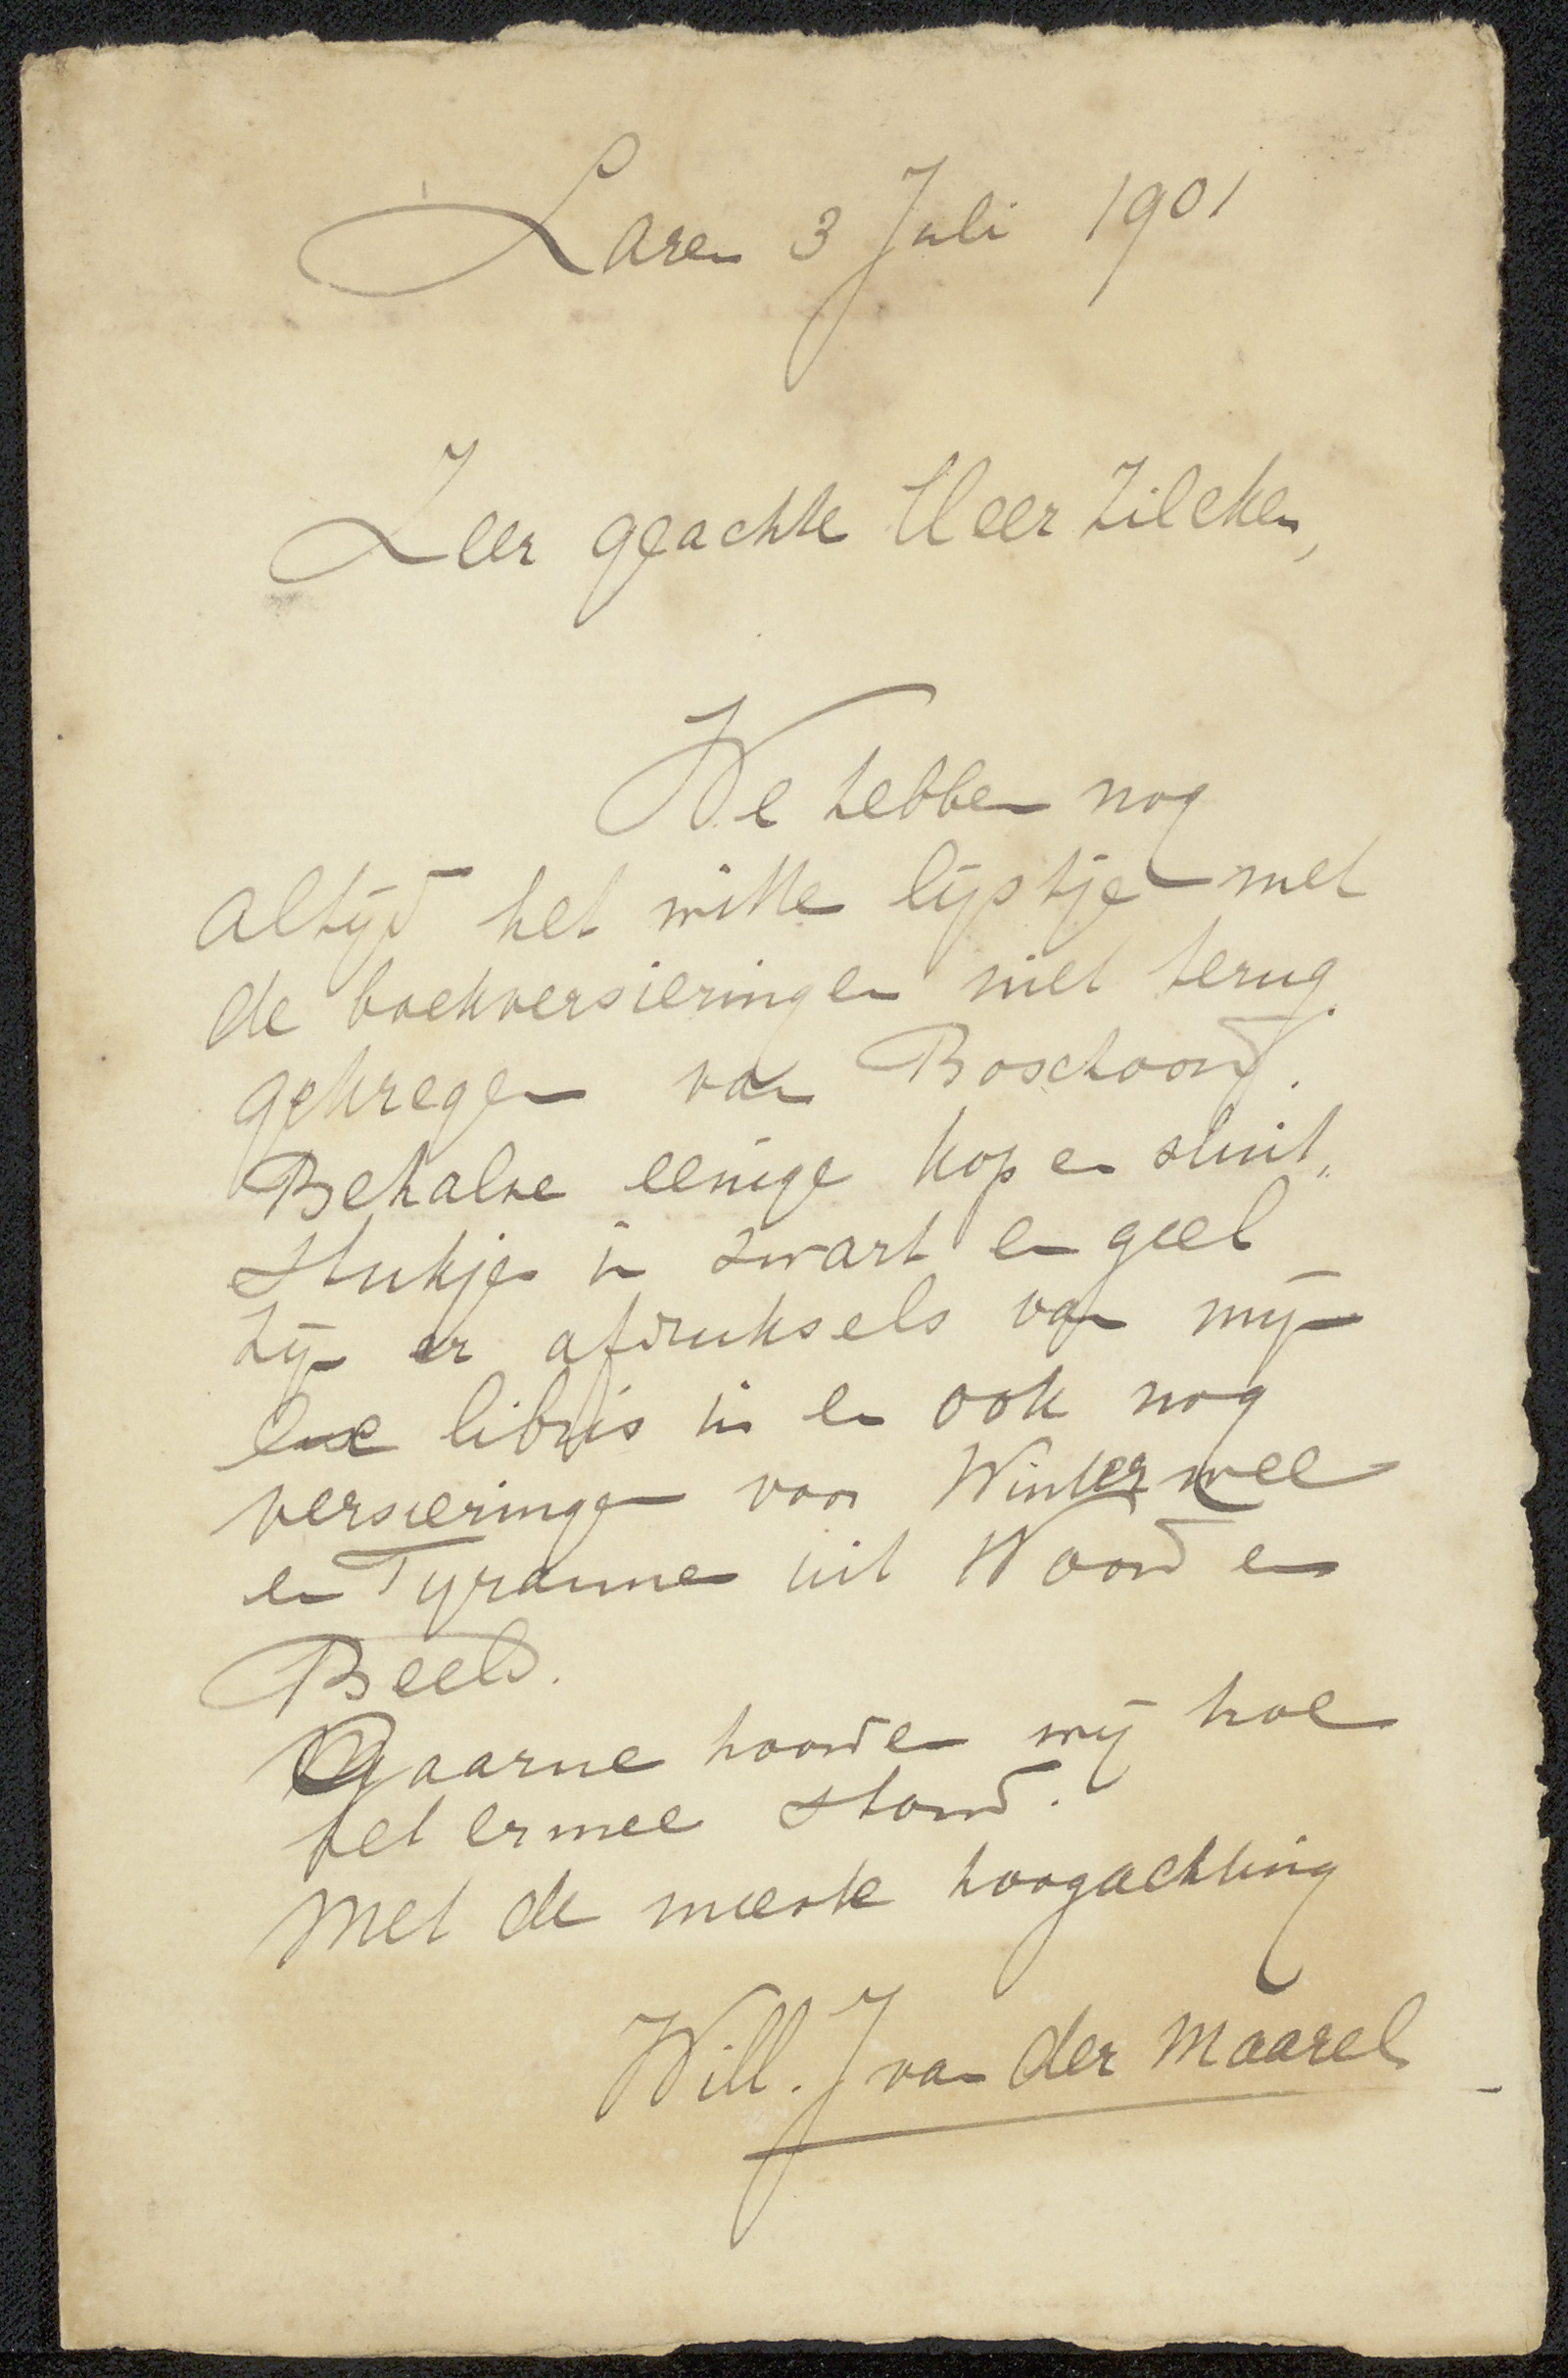 Laren 3 Juli 1901
Zeer geachte Heer Zilcken,
We hebben nog
altijd het witte lijstje met
de boekversieringen niet terug.
gekregen van Boschoord.
Behalve eenige kop en sluit„
stukjes in zwart en geel
zijn er afdruksels van mijn
ex libris in en ook nog
versieringen voor Winterwee
en Tyrannen uit Woord en
Beeld.
Gaarne hoorden wij hoe
het ermee stond.
Met de meeste hoogachting
Will. J van der Maarel